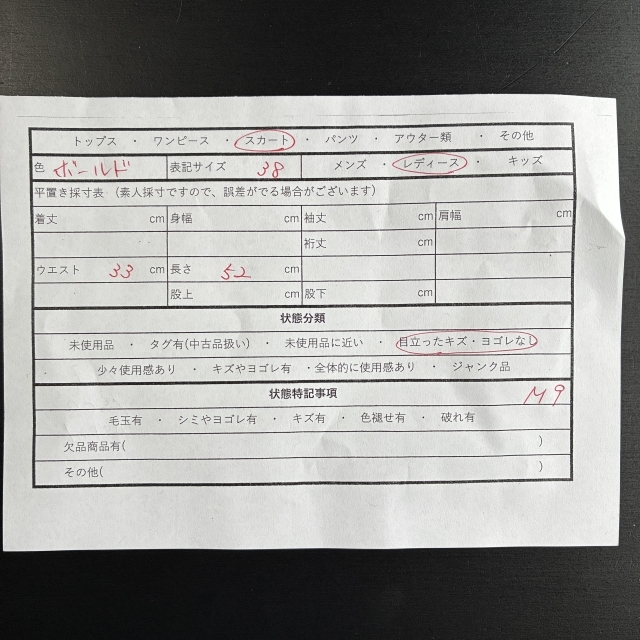 トップス ・ ワンピース ・ スカート ・ パンツ ・ アウター類 ・ その他
色 ボールド 表記サイズ 38 メンズ ・ レディース ・ キッズ
平置き採寸表（素人採寸ですので、誤差がでる場合がございます）
着丈 cm 身幅 cm 袖丈 cm 肩幅 cm
裄丈 cm
ウエスト 33 cm 長さ 52 cm
股上 cm 股下 cm
状態分類
未使用品 ・ タグ有(中古品扱い) ・ 未使用品に近い ・ 目立ったキズ・ヨゴレなし
少々使用感あり ・ キズやヨゴレ有 ・全体的に使用感あり ・ ジャンク品
状態特記事項
M9
毛玉有 ・ シミやヨゴレ有 ・ キズ有 ・ 色褪せ有 ・ 破れ有
欠品商品有( )
その他( )